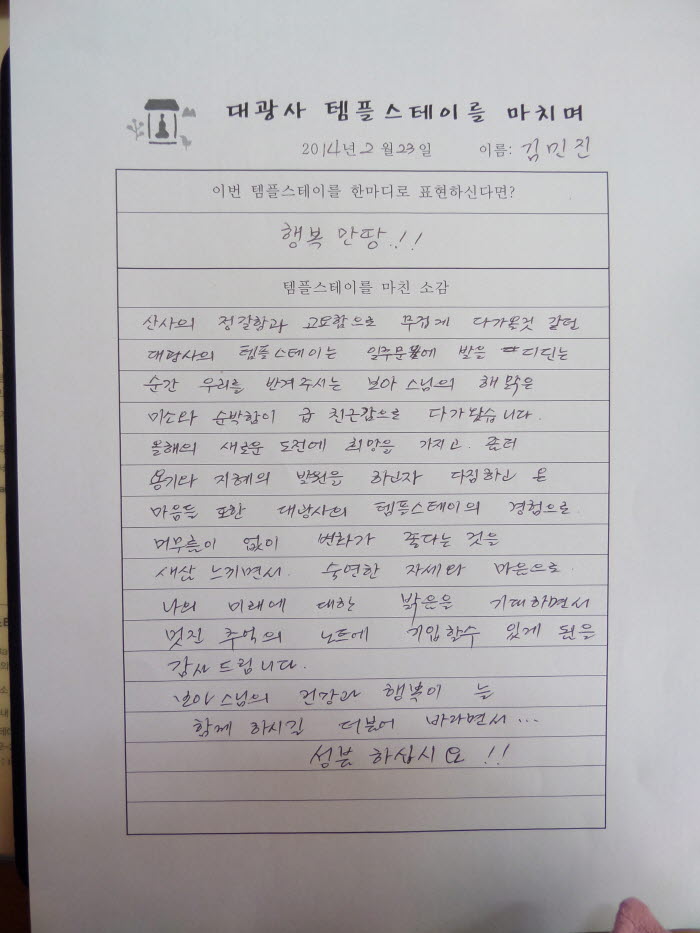 대광사 템플스테이를 마치며
2014년 2월 23일 이름: 김민진
이번 템플스테이를 한마디로 표현하신다면?
행복 만땅.!!
템플스테이를 마친 소감
산사의 정갈함과 고요함으로 무겁게 다가올것 같던
대광사의 템플스테이는 일주문에 발을 디딘는
순간 우리를 반겨주시는 보아 스님의 해 맑은
미소와 순박함이 급 친근감으로 다가왔습니다.
올해의 새로운 도전에 희망을 가지고.
용기와 지혜의 발원을 하고자 다짐하고 온
마음들 또한 대광사의 템플스테이의 경험으로.
머무름이 없이 변화가 좋다는 것을
새삼 느끼면서. 숙연한 자세와 마음으로.
나의 미래에 대한 밝은 기대하면서
멋진 추억의 노트에 기입할수 있게 됨을
감사드립니다.
보아 스님의 건강과 행복이 늘
함께 하시길 더불어 바라면서...
성불 하십시요 !!